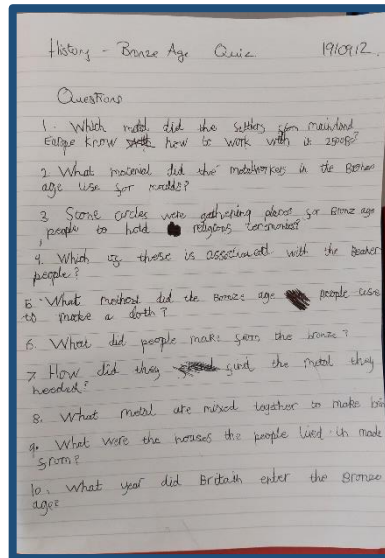 History - Bronze Age Quiz 19/09/12
Questions
1. Which metal did the settlers from mainland
Europe know how to work with in 2500BC?
2. What material did the metalworkers in the Bronze
age use for moulds?
3. Stone circles were gathering places for Bronze age
people to hold religious ceremonies?
4. Which of these is associated with the Beaker
people?
5. What method did the Bronze age people use
to make a cloth?
6. What did people make from the bronze?
7. How did they find the metal they
needed?
8. What metal are mixed together to make
9. What were the houses the people lived in made
from?
10. What year did Britain enter the Bronze
age?